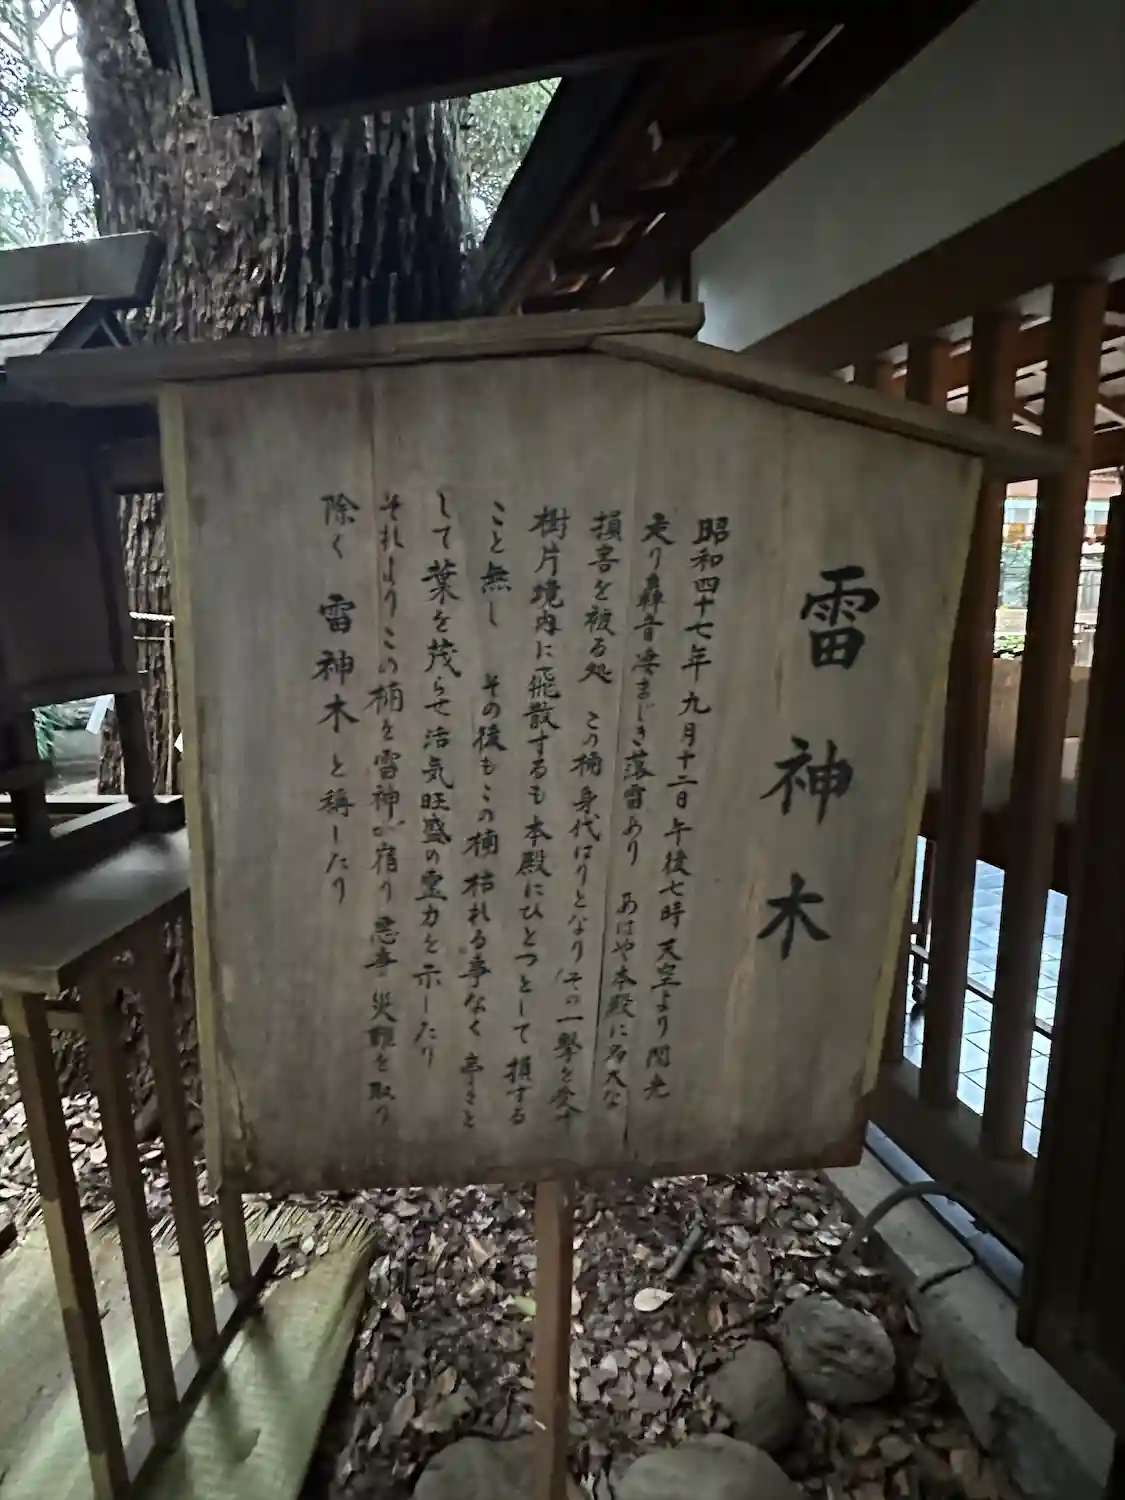 雷神木
昭和四十七年九月十二日午後七時天空より閃光
走り轟音凄まじき落雷あり あはや本殿に多大な
損害を被る処 この楠身代はりとなり その一撃を受け
樹片境内に飛散するも本殿にひとつとして損する
こと無し その後もこの楠枯れる事なく 亭々と
して葉を茂らせ活気旺盛の霊力を示したり
それよりこの楠を雷神が宿り 悪事 災難を取り
除く 雷神木と稱したり